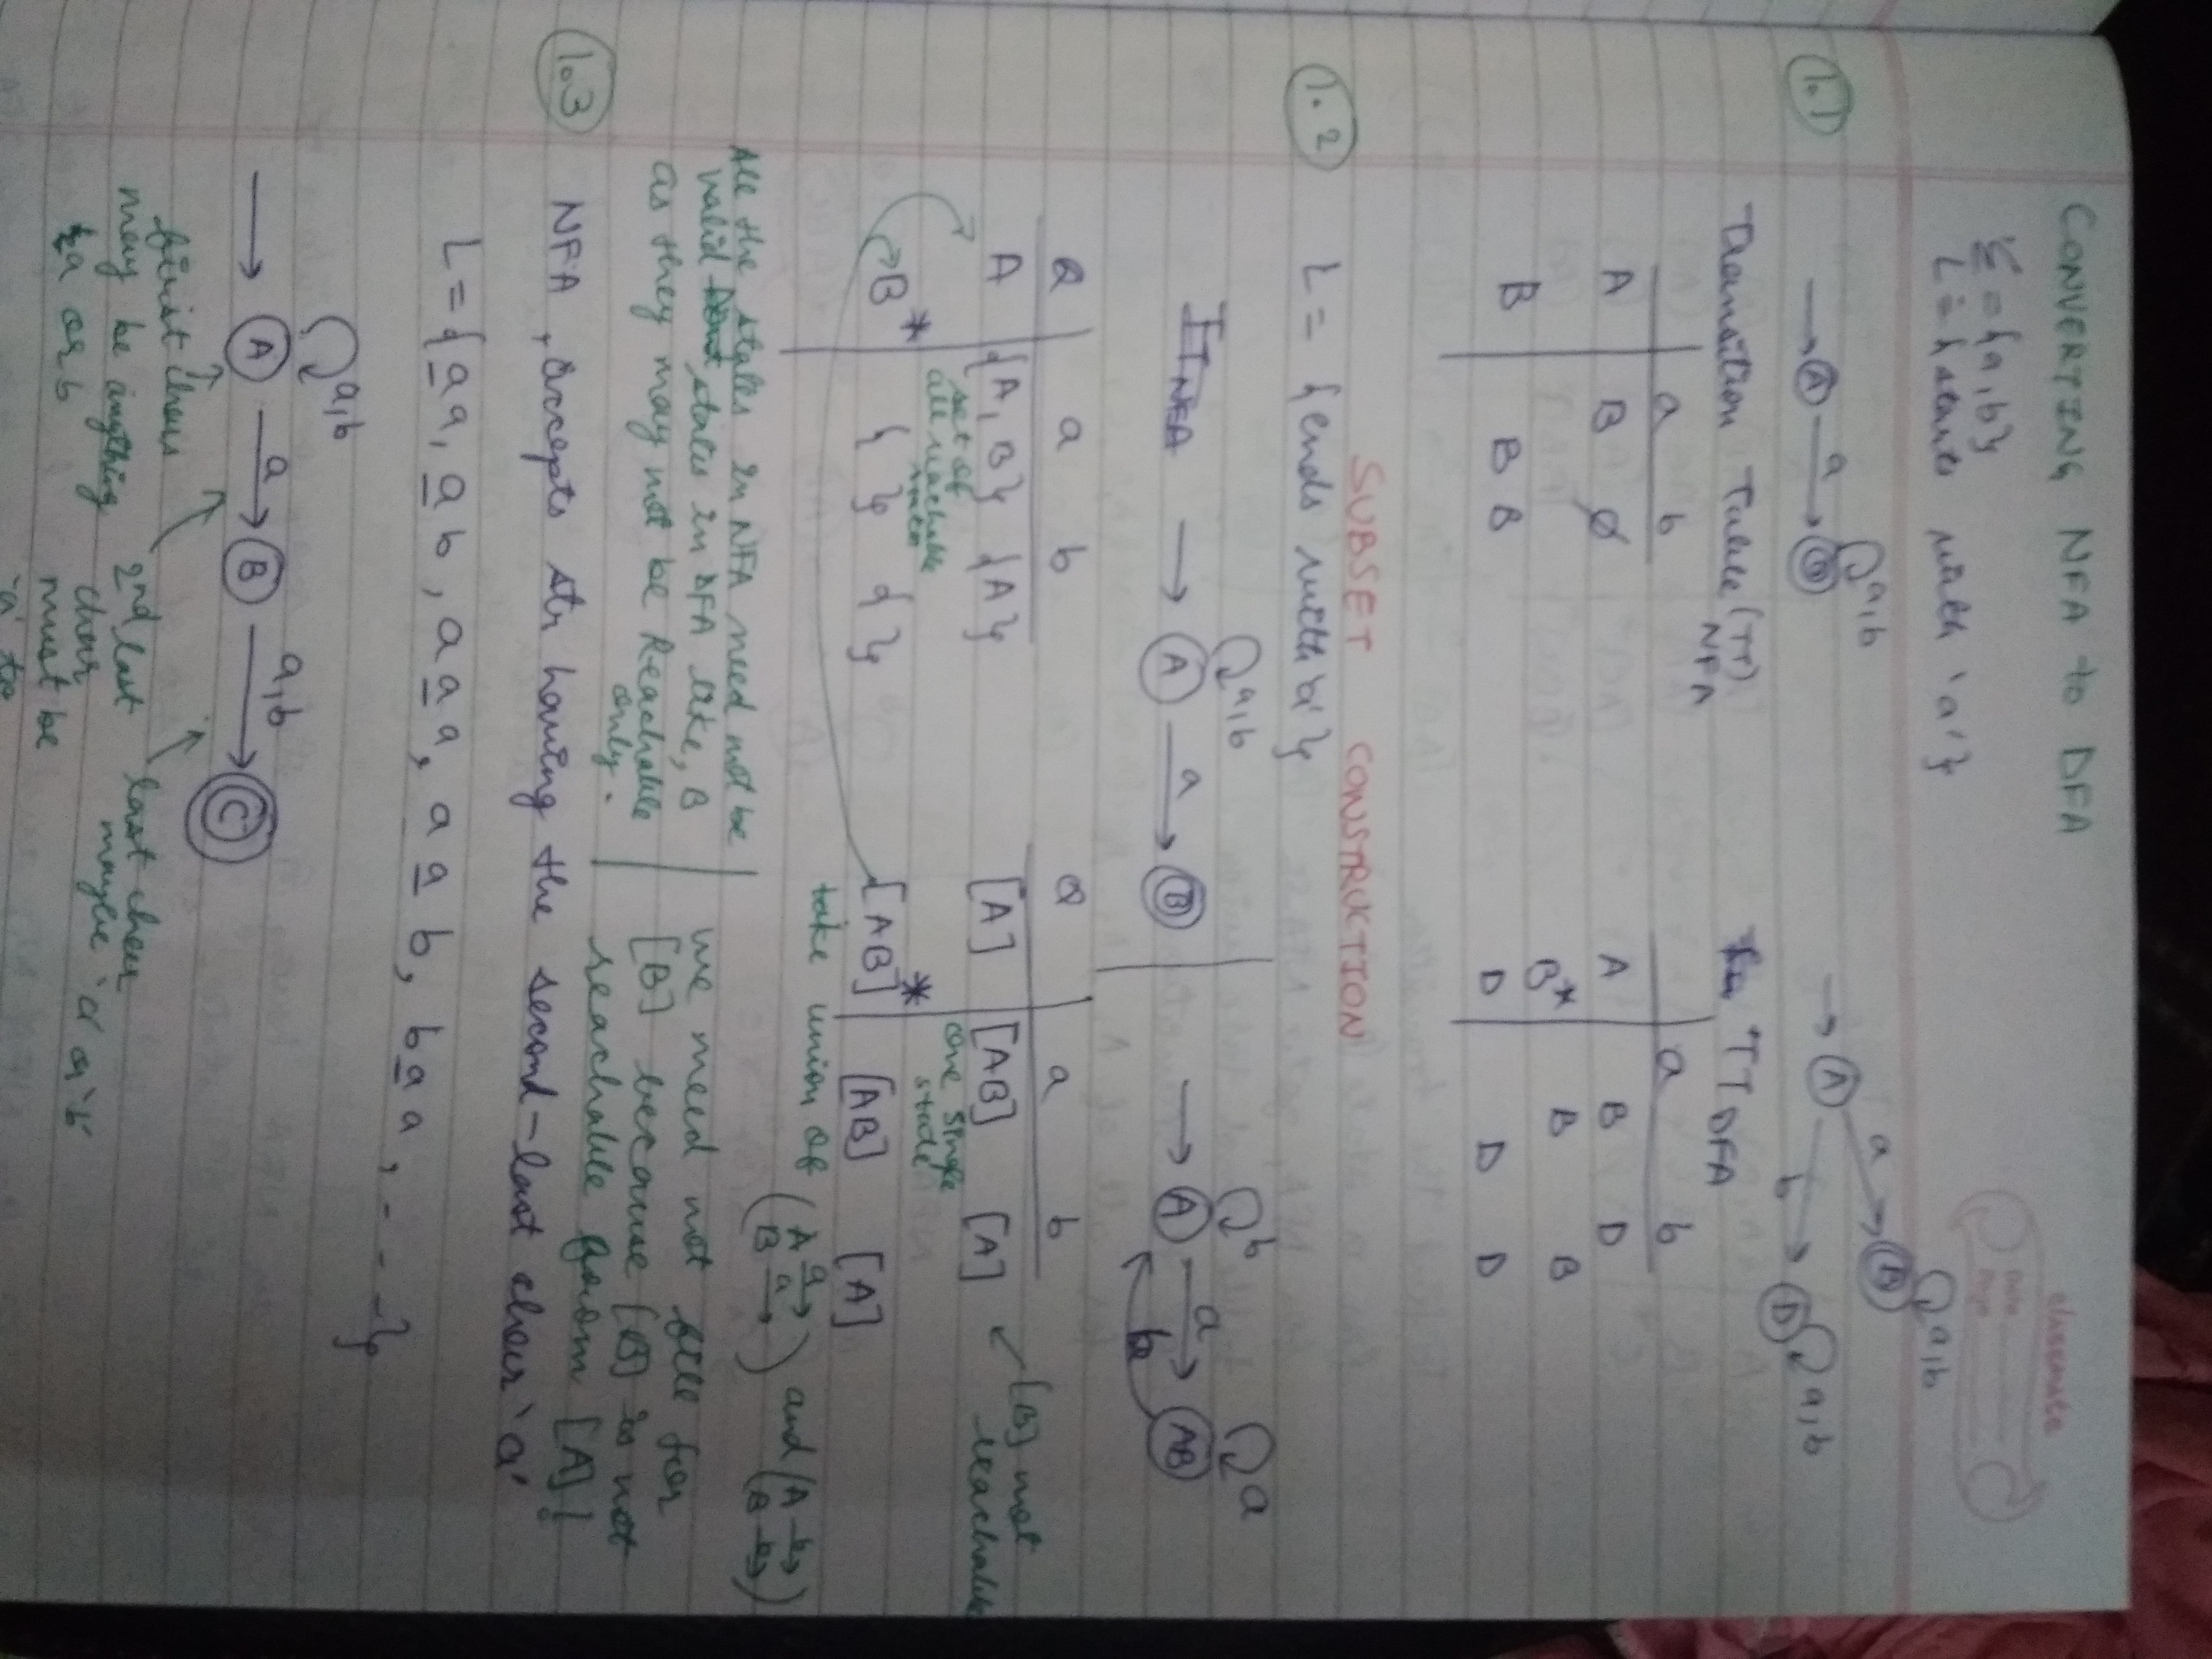 classmate
Date
Page
CONVERTING NFA to DFA
Σ = {a,b}
L = { starts with 'a'}
1.1
A a B a,b
A a B a,b
b D a,b
Transition Table (TT) NFA
TT DFA
a b
A B ∅
B B B
a b
A B D
B* B B
D D D
SUBSET CONSTRUCTION
1.2 L = { ends with 'a' }
NFA → A a,b a B
→ A b a AB a
b
Q a b
A {A, B} {A}
set of all reachable
B* { } { }
Q a b
[A] [AB] [A]
[B] not reachable
one single state
[AB]* [AB] [A]
take union of (A a→ B a→) and (A b→ B b→)
All the states in NFA need not be
valid states in DFA like, B
as they may not be Reachable
only.
we need not fill for
[B] because [B] is not
reachable from [A]!
1.3 NFA, accepts str having the second-last char 'a'
L = {aa, ab, aaa, aab, baa, - - -}
→ A a,b a B a,b C
first chars
may be anything
a or b
2nd last
char
must be
'a'
last char
maybe 'a' or 'b'